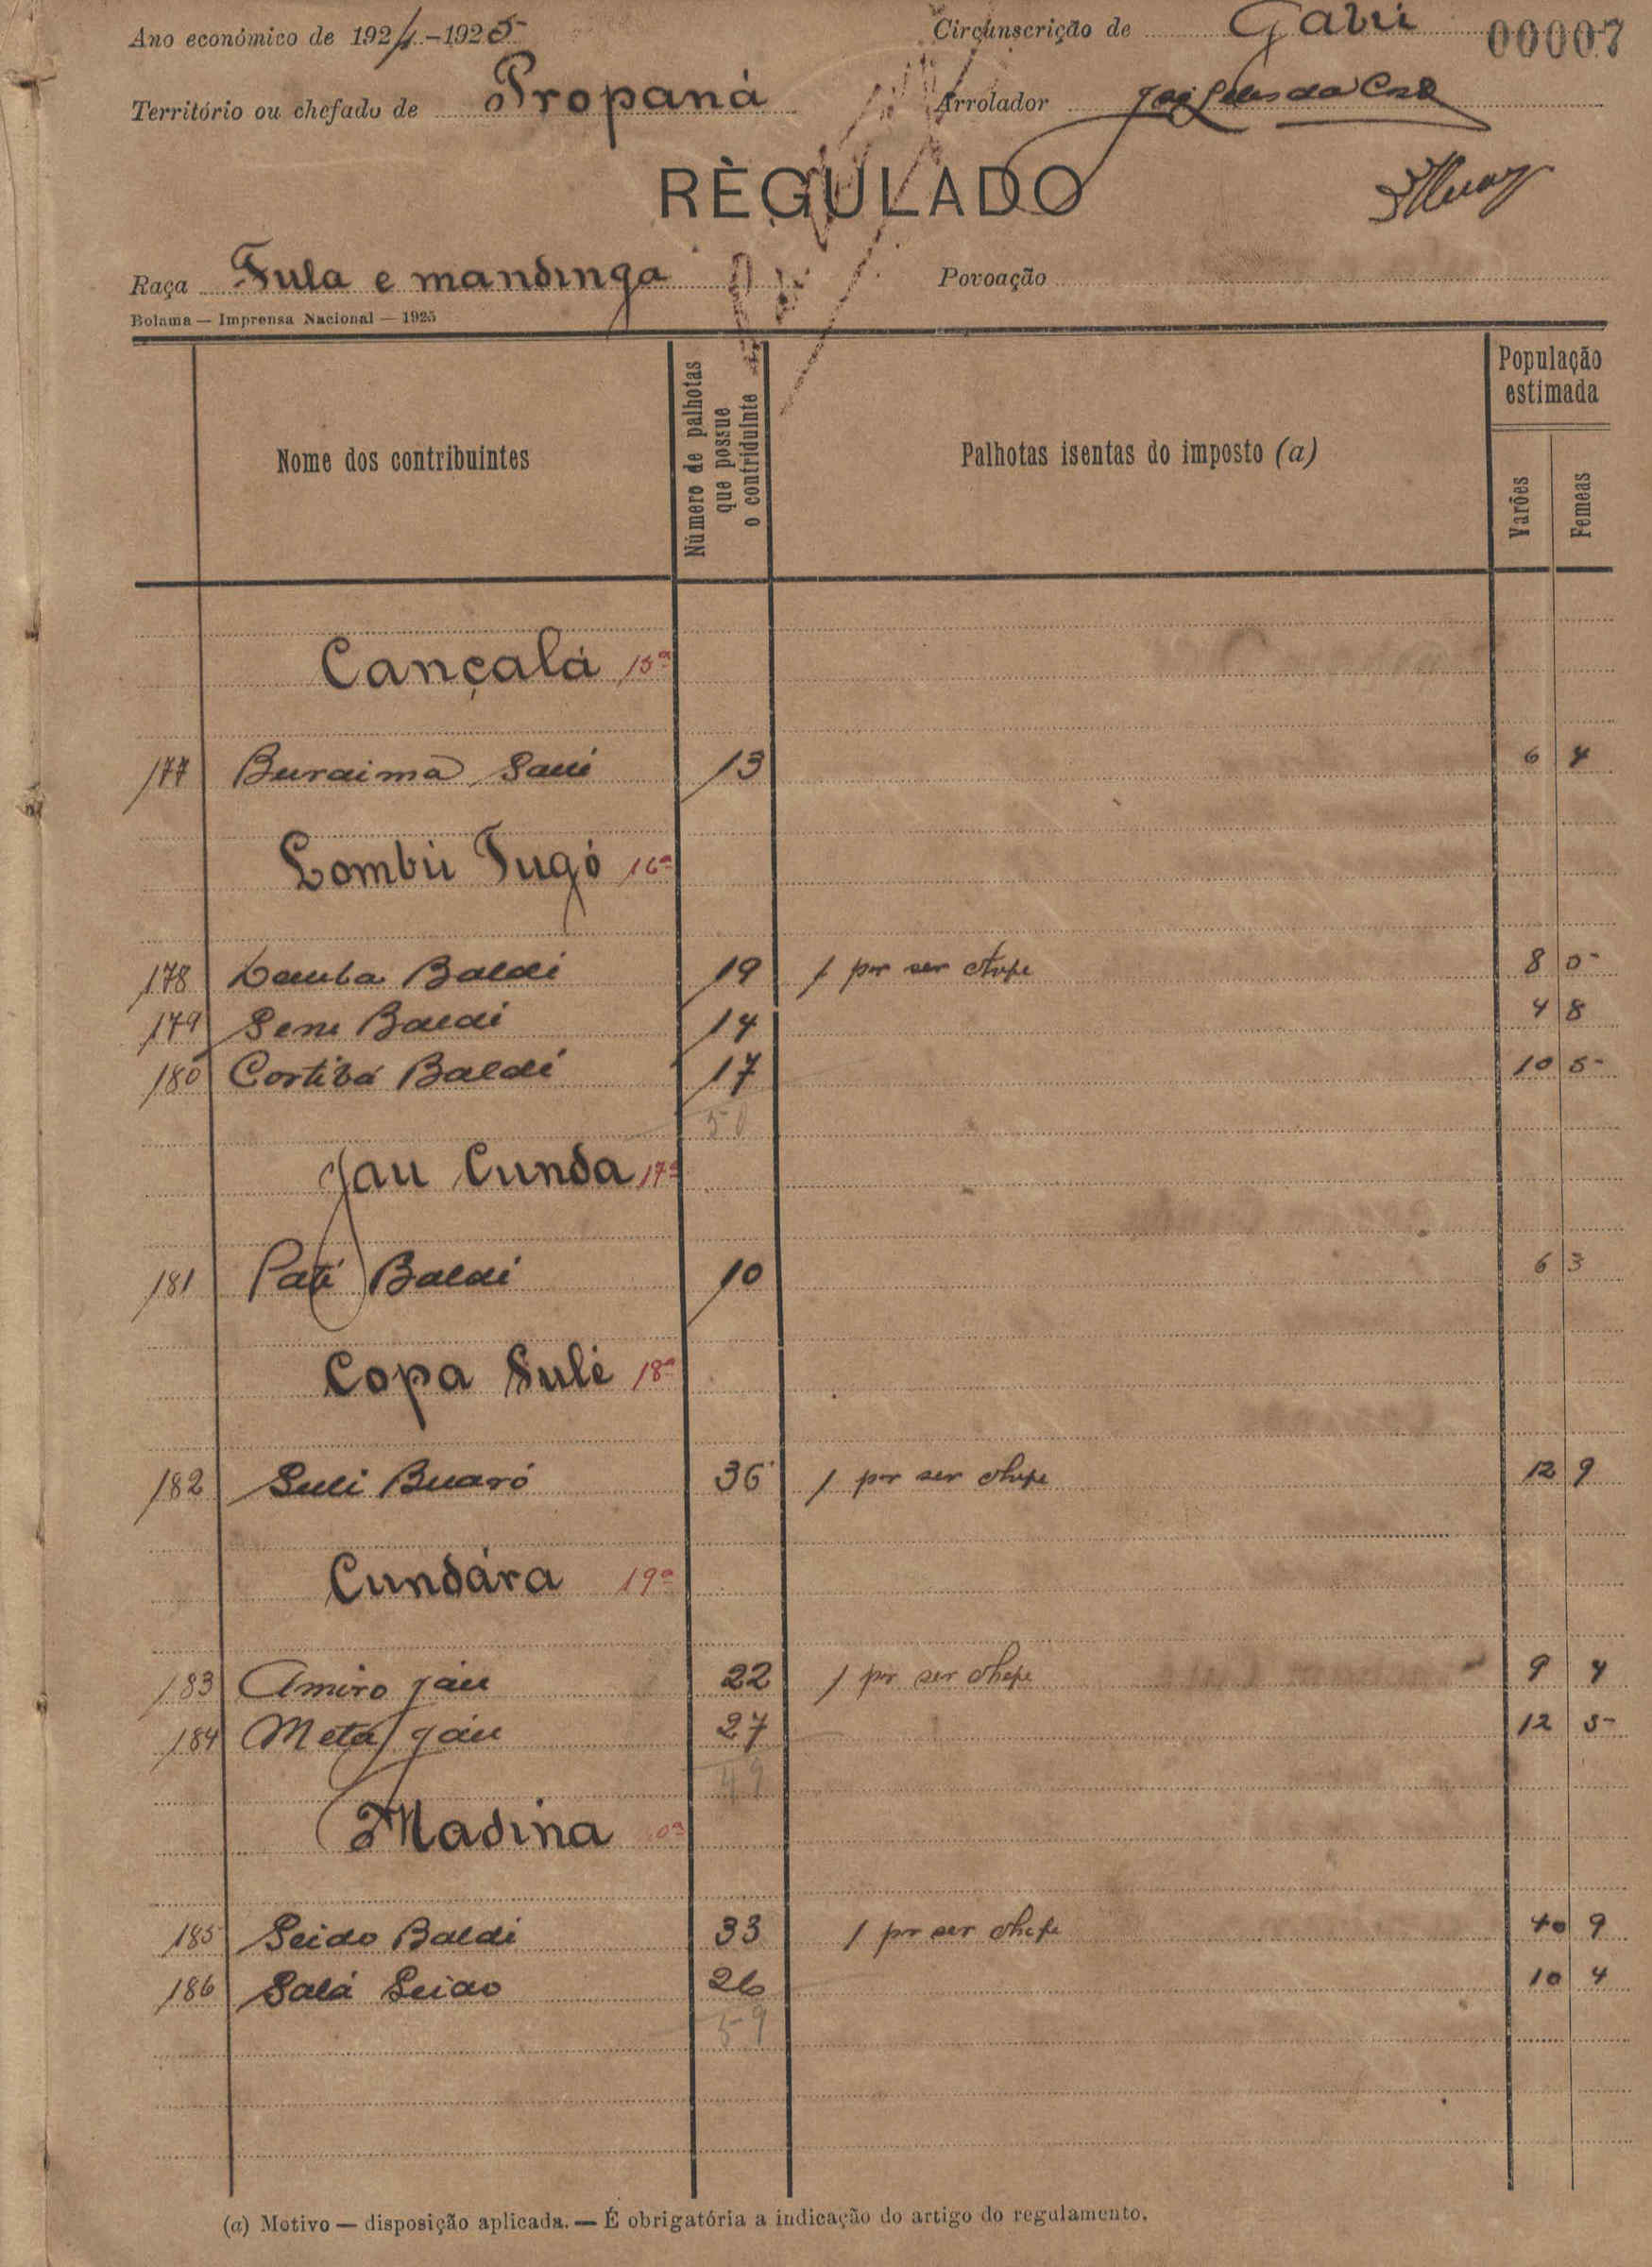 Ano económico de 1924-1925 Circunscrição de Gabú 00007
Território ou chefado de Propaná Arrolador
RÈGULADO
Raça Fula e mandinga Povoação
Bolama — Imprensa Nacional — 1925
Nome dos contribuintes
Número de palhotas
que possue
o contriduinte
Palhotas isentas do imposto (a)
População
estimada
Varões
Femeas
Cançalá 15ª
177 Buraima 13 6 4
Lombú Tugó 16ª
178 Baldé 19 1 por ser chefe 8 5
179 Baldé 14 4 8
180 Cortibá Baldé 17 10 5
50
Jau Cunda 17ª
181 Paté Baldé 10 6 3
Copa Sulé 18ª
182 Suli Buaró 36 1 por ser chefe 12 9
Cundára 19ª
183 Amiro Jáu 22 1 por ser chefe 9 4
184 Metá Jáu 27 12 5
49
Madina
185 Seido Baldé 33 1 por ser chefe 10 9
186 Salá Seido 26 10 4
59
(a) Motivo — disposição aplicada. — É obrigatória a indicação do artigo do regulamento.